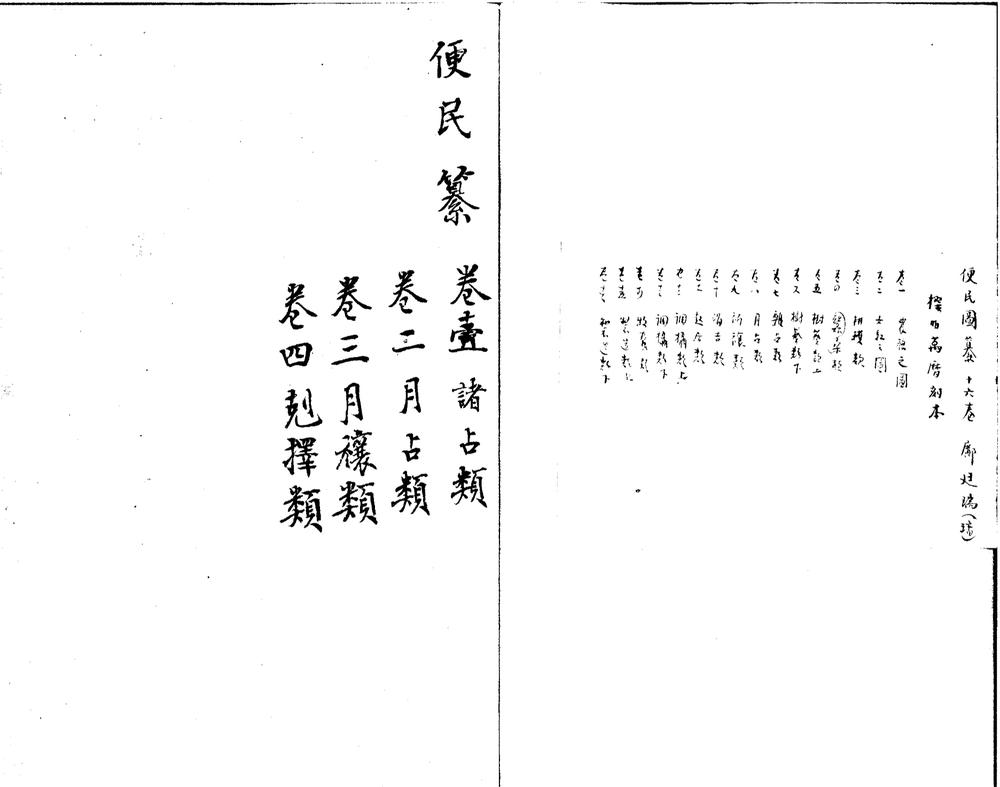 便民圖纂 十六卷 鄺廷瑞(璠)
明萬曆刻本
卷一 農務之圖
卷二 女紅之圖
卷三 耕穫類
卷四 桑蠶類
卷五 樹藝類上
卷六 樹藝類下
卷七 雜占類
卷八 月占類
卷九 祈禳類
卷十 涓吉類
卷十一 起居類
卷十二 調攝類上
卷十三 調攝類下
卷十四 牧養類
卷十五 製造類上
卷十六 製造類下
便民纂
卷壹 諸占類
卷二 月占類
卷三 月禳類
卷四 剋擇類